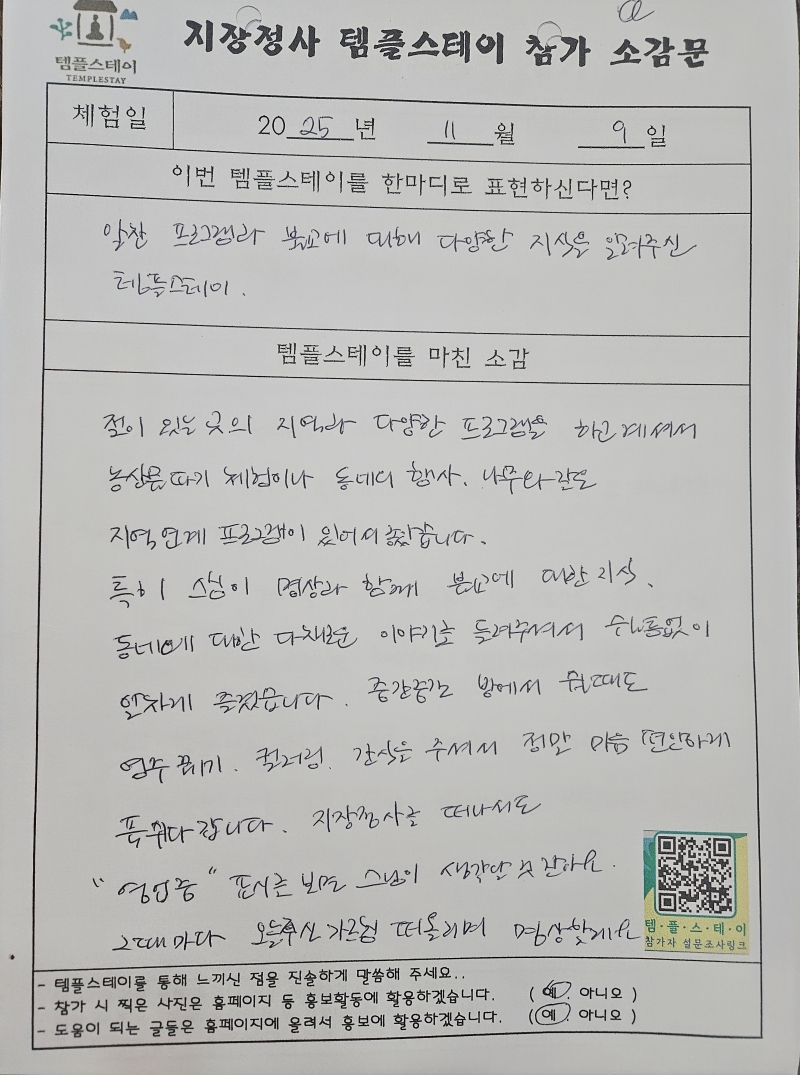 템플스테이
TEMPLESTAY
지장정사 템플스테이 참가 소감문
체험일 2025년 11월 9일
이번 템플스테이를 한마디로 표현하신다면?
알찬 프로그램과 불교에 대해 다양한 지식을 알려주신
템플스테이.
템플스테이를 마친 소감
절이 있는 곳의 지역과 다양한 프로그램을 하고 계셔서
농산물 따기 체험이나 동네의 행사, 나무와 같은
지역연계 프로그램이 있어서 좋았습니다.
특히 스님이 명상과 함께 불교에 대한 지식,
동네에 대한 다채로운 이야기를 들려주셔서 쉴틈없이
알차게 즐겼습니다. 중간중간 방에서 쉴때도
염주 꿰기, 컬러링, 간식을 주셔서 정말 마음 편안하게
푹 쉬다 갑니다. 지장정사를 떠나서도
"영업중" 표시를 보면 스님이 생각날 것 같아요.
그때마다 오늘주신 가르침 떠올리며 명상할게요
템·플·스·테·이
참가자 설문조사링크
- 템플스테이를 통해 느끼신 점을 진솔하게 말씀해 주세요..
- 참가 시 찍은 사진은 홈페이지 등 홍보활동에 활용하겠습니다. ( 예. 아니오 )
- 도움이 되는 글들은 홈페이지에 올려서 홍보에 활용하겠습니다. ( 예. 아니오 )